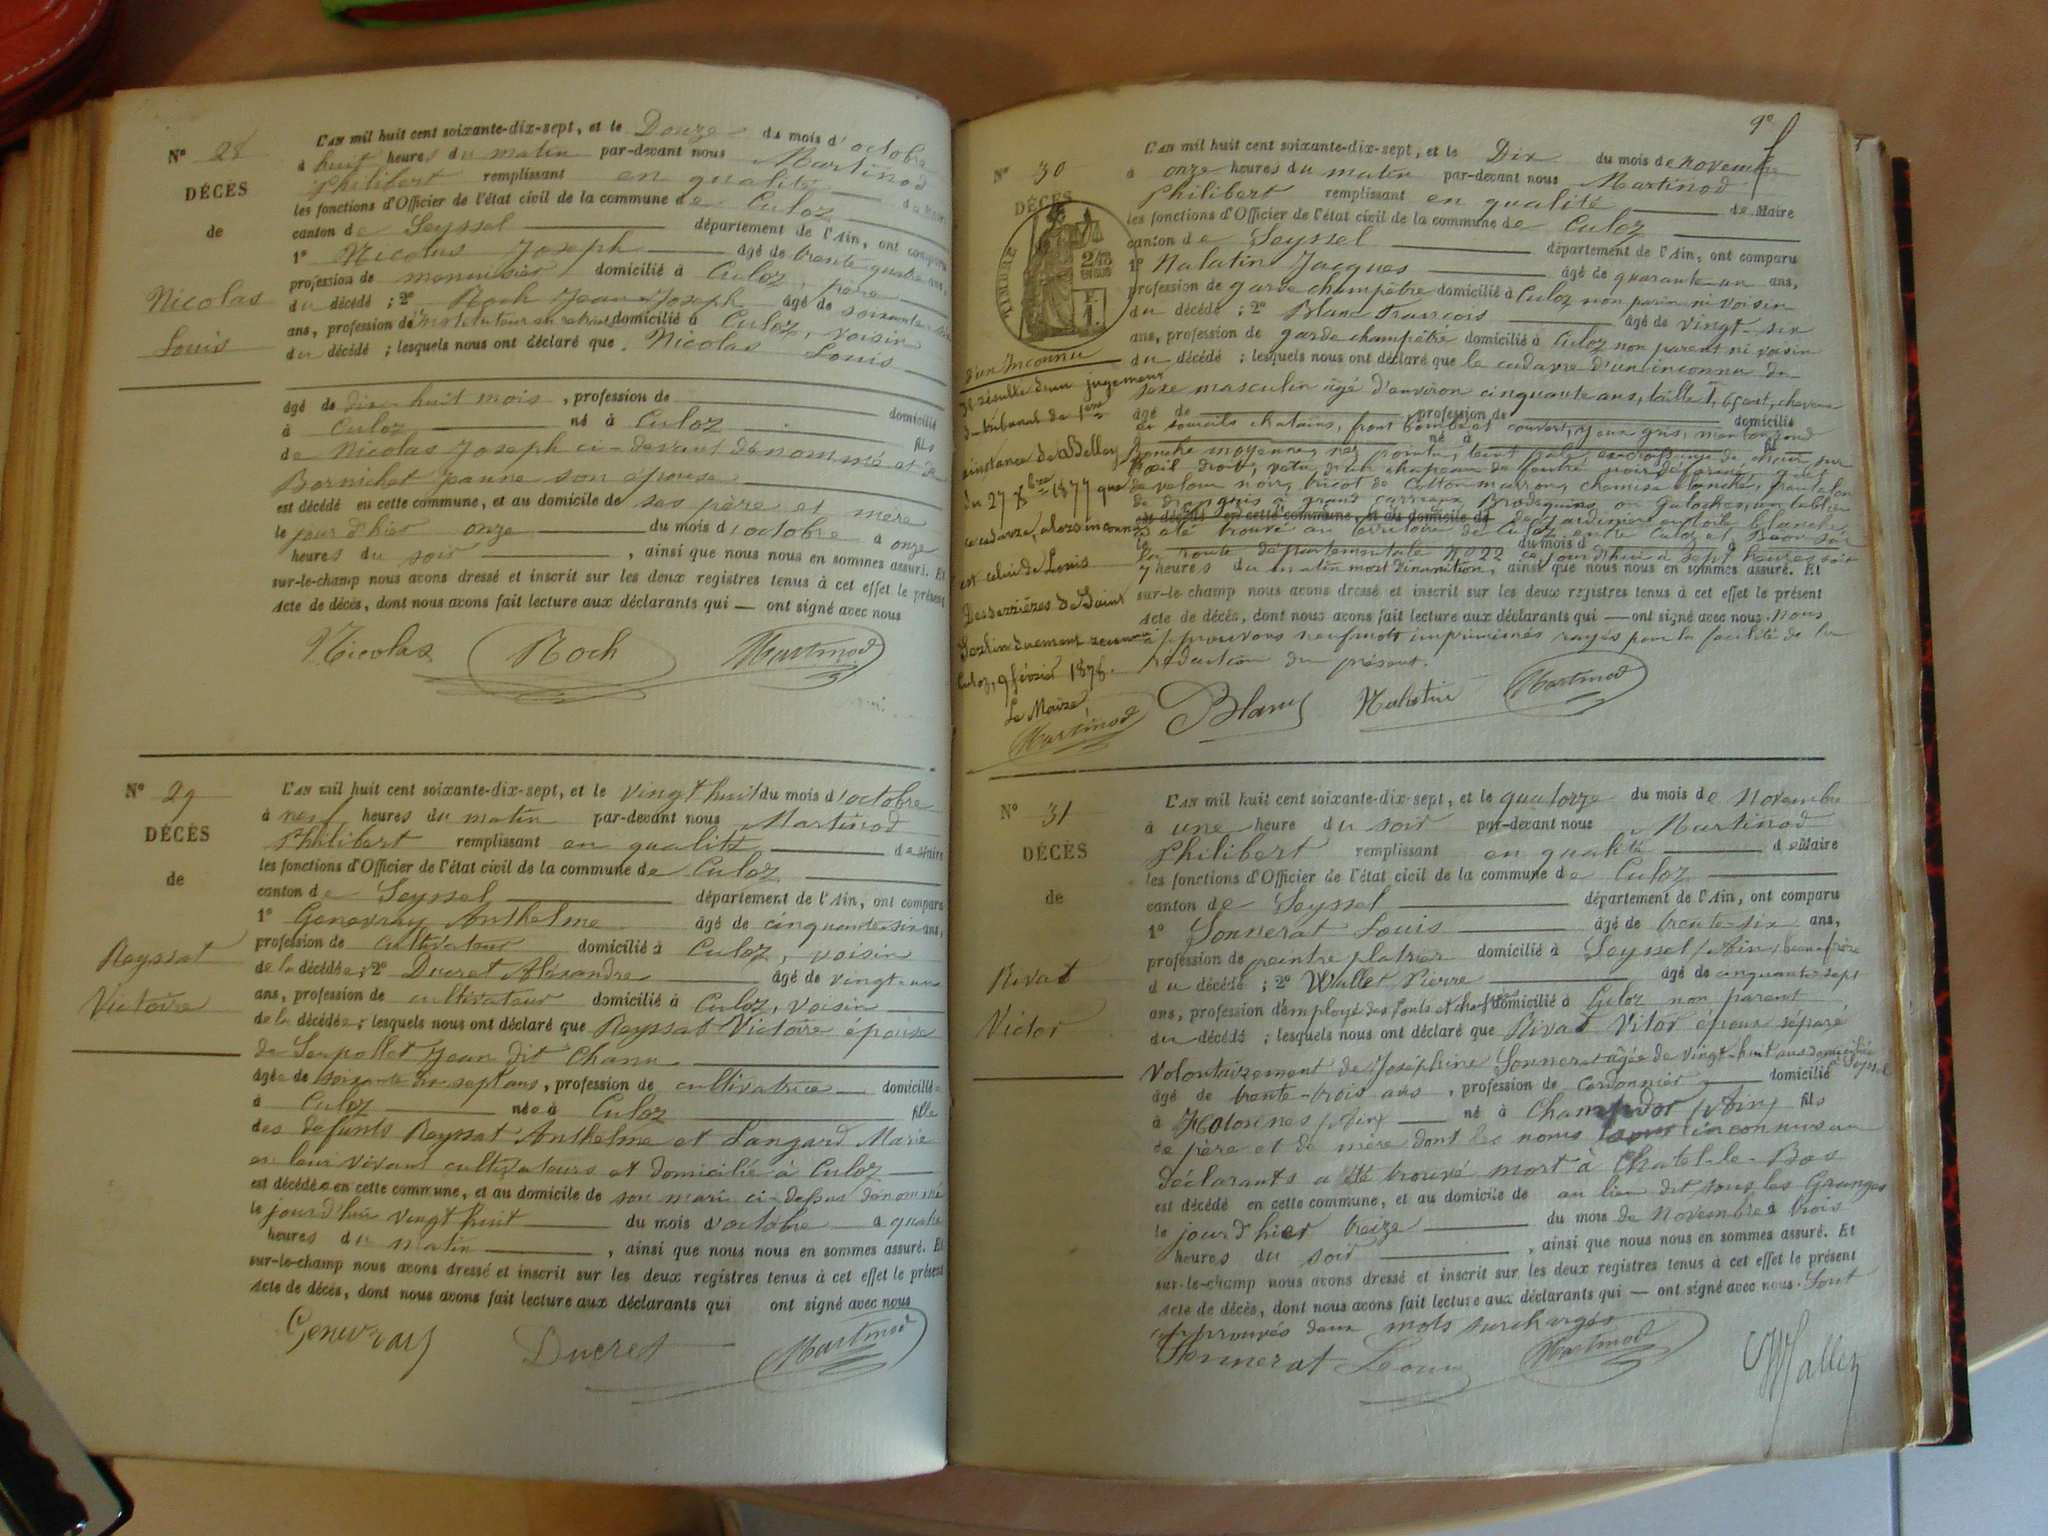 N° 28
DÉCÈS
de
Nicolas
Louis
L'AN mil huit cent soixante-dix-sept, et le Douze du mois d'octobre
à huit heures du matin par-devant nous Martinod
Philibert remplissant en qualité de Maire
les fonctions d'Officier de l'état civil de la commune de Culoz
canton de Seyssel département de l'Ain, ont comparu
1° Nicolas Joseph âgé de trente quatre ans,
profession de menuisier domicilié à Culoz, père
du décédé ; 2° Roch Jean Joseph âgé de soixante
ans, profession d'instituteur en retraite domicilié à Culoz, voisin
du décédé ; lesquels nous ont déclaré que Nicolas Louis
âgé de dix-huit mois, profession de domicilié
à Culoz né à Culoz fils
de Nicolas Joseph ci-devant dénommé et de
Bornichet Jeanne son épouse
est décédé en cette commune, et au domicile de ses père et mère
le jour d'hier onze du mois d'octobre à onze
heures du soir, ainsi que nous nous en sommes assuré. Et
sur-le-champ nous avons dressé et inscrit sur les deux registres tenus à cet effet le présent
Acte de décès, dont nous avons fait lecture aux déclarants qui — ont signé avec nous
Nicolas Roch Martinod
N° 29
DÉCÈS
de
Reyssat
Victoire
L'AN mil huit cent soixante-dix-sept, et le vingt huit du mois d'octobre
à neuf heures du matin par-devant nous Martinod
Philibert remplissant en qualité de Maire
les fonctions d'Officier de l'état civil de la commune de Culoz
canton de Seyssel département de l'Ain, ont comparu
1° Genevray Anthelme âgé de cinquante six ans,
profession de cultivateur domicilié à Culoz, voisin
de la décédée ; 2° Ducret Alexandre âgé de vingt-un
ans, profession de cultivateur domicilié à Culoz, voisin
de la décédée ; lesquels nous ont déclaré que Reyssat Victoire épouse
de Serpollet Jean dit Chanu
âgée de soixante dix sept ans, profession de cultivatrice domiciliée
à Culoz née à Culoz fille
des défunts Reyssat Anthelme et Langard Marie
en leur vivant cultivateurs et domicilié à Culoz
est décédée en cette commune, et au domicile de son mari ci-dessus dénommé
le jourd'hui vingt huit du mois d'octobre à quatre
heures du matin, ainsi que nous nous en sommes assuré. Et
sur-le-champ nous avons dressé et inscrit sur les deux registres tenus à cet effet le présent
Acte de décès, dont nous avons fait lecture aux déclarants qui ont signé avec nous
Genevray Ducret Martinod
9e
N° 30
DÉCÈS
TIMBRE
2/10
EN SUS
d'un Inconnu
Il résulte d'un jugement
du tribunal de 1ère
instance de Belley
du 27 Xbre 1877 que
ce cadavre, alors inconnu
est celui de Louis
Desserrières de Saint
Culoz, 9 février 1878.
Le Maire
Martinod
L'AN mil huit cent soixante-dix-sept, et le Dix du mois de novembre
à onze heures du matin par-devant nous Martinod
Philibert remplissant en qualité de Maire
les fonctions d'Officier de l'état civil de la commune de Culoz
canton de Seyssel département de l'Ain, ont comparu
1° Nalatin Jacques âgé de quarante un ans,
profession de garde champêtre domicilié à Culoz non parent ni voisin
du décédé ; 2° Blanc François âgé de vingt-six
ans, profession de garde champêtre domicilié à Culoz non parent ni voisin
du décédé ; lesquels nous ont déclaré que le cadavre d'un inconnu du
sexe masculin âgé d'environ cinquante ans, taille 1,65 cent, cheveux
âgé de profession de domicilié
et sourcils chatains, front bombé et couvert, yeux gris, menton rond
né à fils
bouche moyenne, nez pointu, teint pale,
l'œil droit, vetu d'un chapeau de feutre noir déformé, gilet
de velours noir, tricot de cotton marron, chemise blanche, pantalon
de drap gris à grand carreaux Brodequins ou galoches, un tablier
est décédé en cette commune, et au domicile de de jardinier en toile blanche
a été trouvé au territoire de Culoz entre Culoz et Béon sur
la route départementale N° 22 du mois d ce jourd'hui à sept heures
7 heures du matin mort d'inanition, ainsi que nous nous en sommes assuré. Et
sur-le-champ nous avons dressé et inscrit sur les deux registres tenus à cet effet le présent
Acte de décès, dont nous avons fait lecture aux déclarants qui — ont signé avec nous. Nous
approuvons neuf mots imprimés rayés pour la facilité de la
rédaction du présent.
Blanc Nalatin Martinod
N° 31
DÉCÈS
de
Rivat
Victor
L'AN mil huit cent soixante-dix-sept, et le quatorze du mois de Novembre
à une heure du soir par-devant nous Martinod
Philibert remplissant en qualité de Maire
les fonctions d'Officier de l'état civil de la commune de Culoz
canton de Seyssel département de l'Ain, ont comparu
1° Sonnerat Louis âgé de trente-six ans,
profession de peintre platrier domicilié à Seyssel (Ain) beau frère
du décédé ; 2° Wallet Pierre âgé de cinquante sept
ans, profession d'employé des ponts et chaussées domicilié à Culoz non parent
du décédé ; lesquels nous ont déclaré que Rivat Vitor époux séparé
volontairement de Joséphine Sonnerat âgée de vingt-huit ans domiciliée à Seyssel
âgé de trente-trois ans, profession de cordonnier domicilié
à Hotonnes (Ain) né à Champdor (Ain) fils
de père et de mère dont les noms sont inconnus aux
déclarants a été trouvé mort à Chatel-le-Bas
est décédé en cette commune, et au domicile de au lieu dit sous les Granges
le jourd'hier treize du mois de novembre à trois
heures du soir, ainsi que nous nous en sommes assuré. Et
sur-le-champ nous avons dressé et inscrit sur les deux registres tenus à cet effet le présent
Acte de décès, dont nous avons fait lecture aux déclarants qui — ont signé avec nous. Sont
approuvés deux mots surchargés
Sonnerat Louis Martinod Wallet